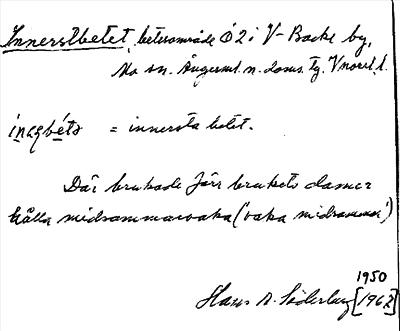 Innerstbetet, betesområde Ö 2 i V-Backe by,
Mo sn. Ångerml. n. doms. Tg. V norrl. l.
= innersta betet.
Där brukade förr brukets damer
hålla midsommarvaka ('vaka midsommar')
1950
Hans A. Söderberg [1962]